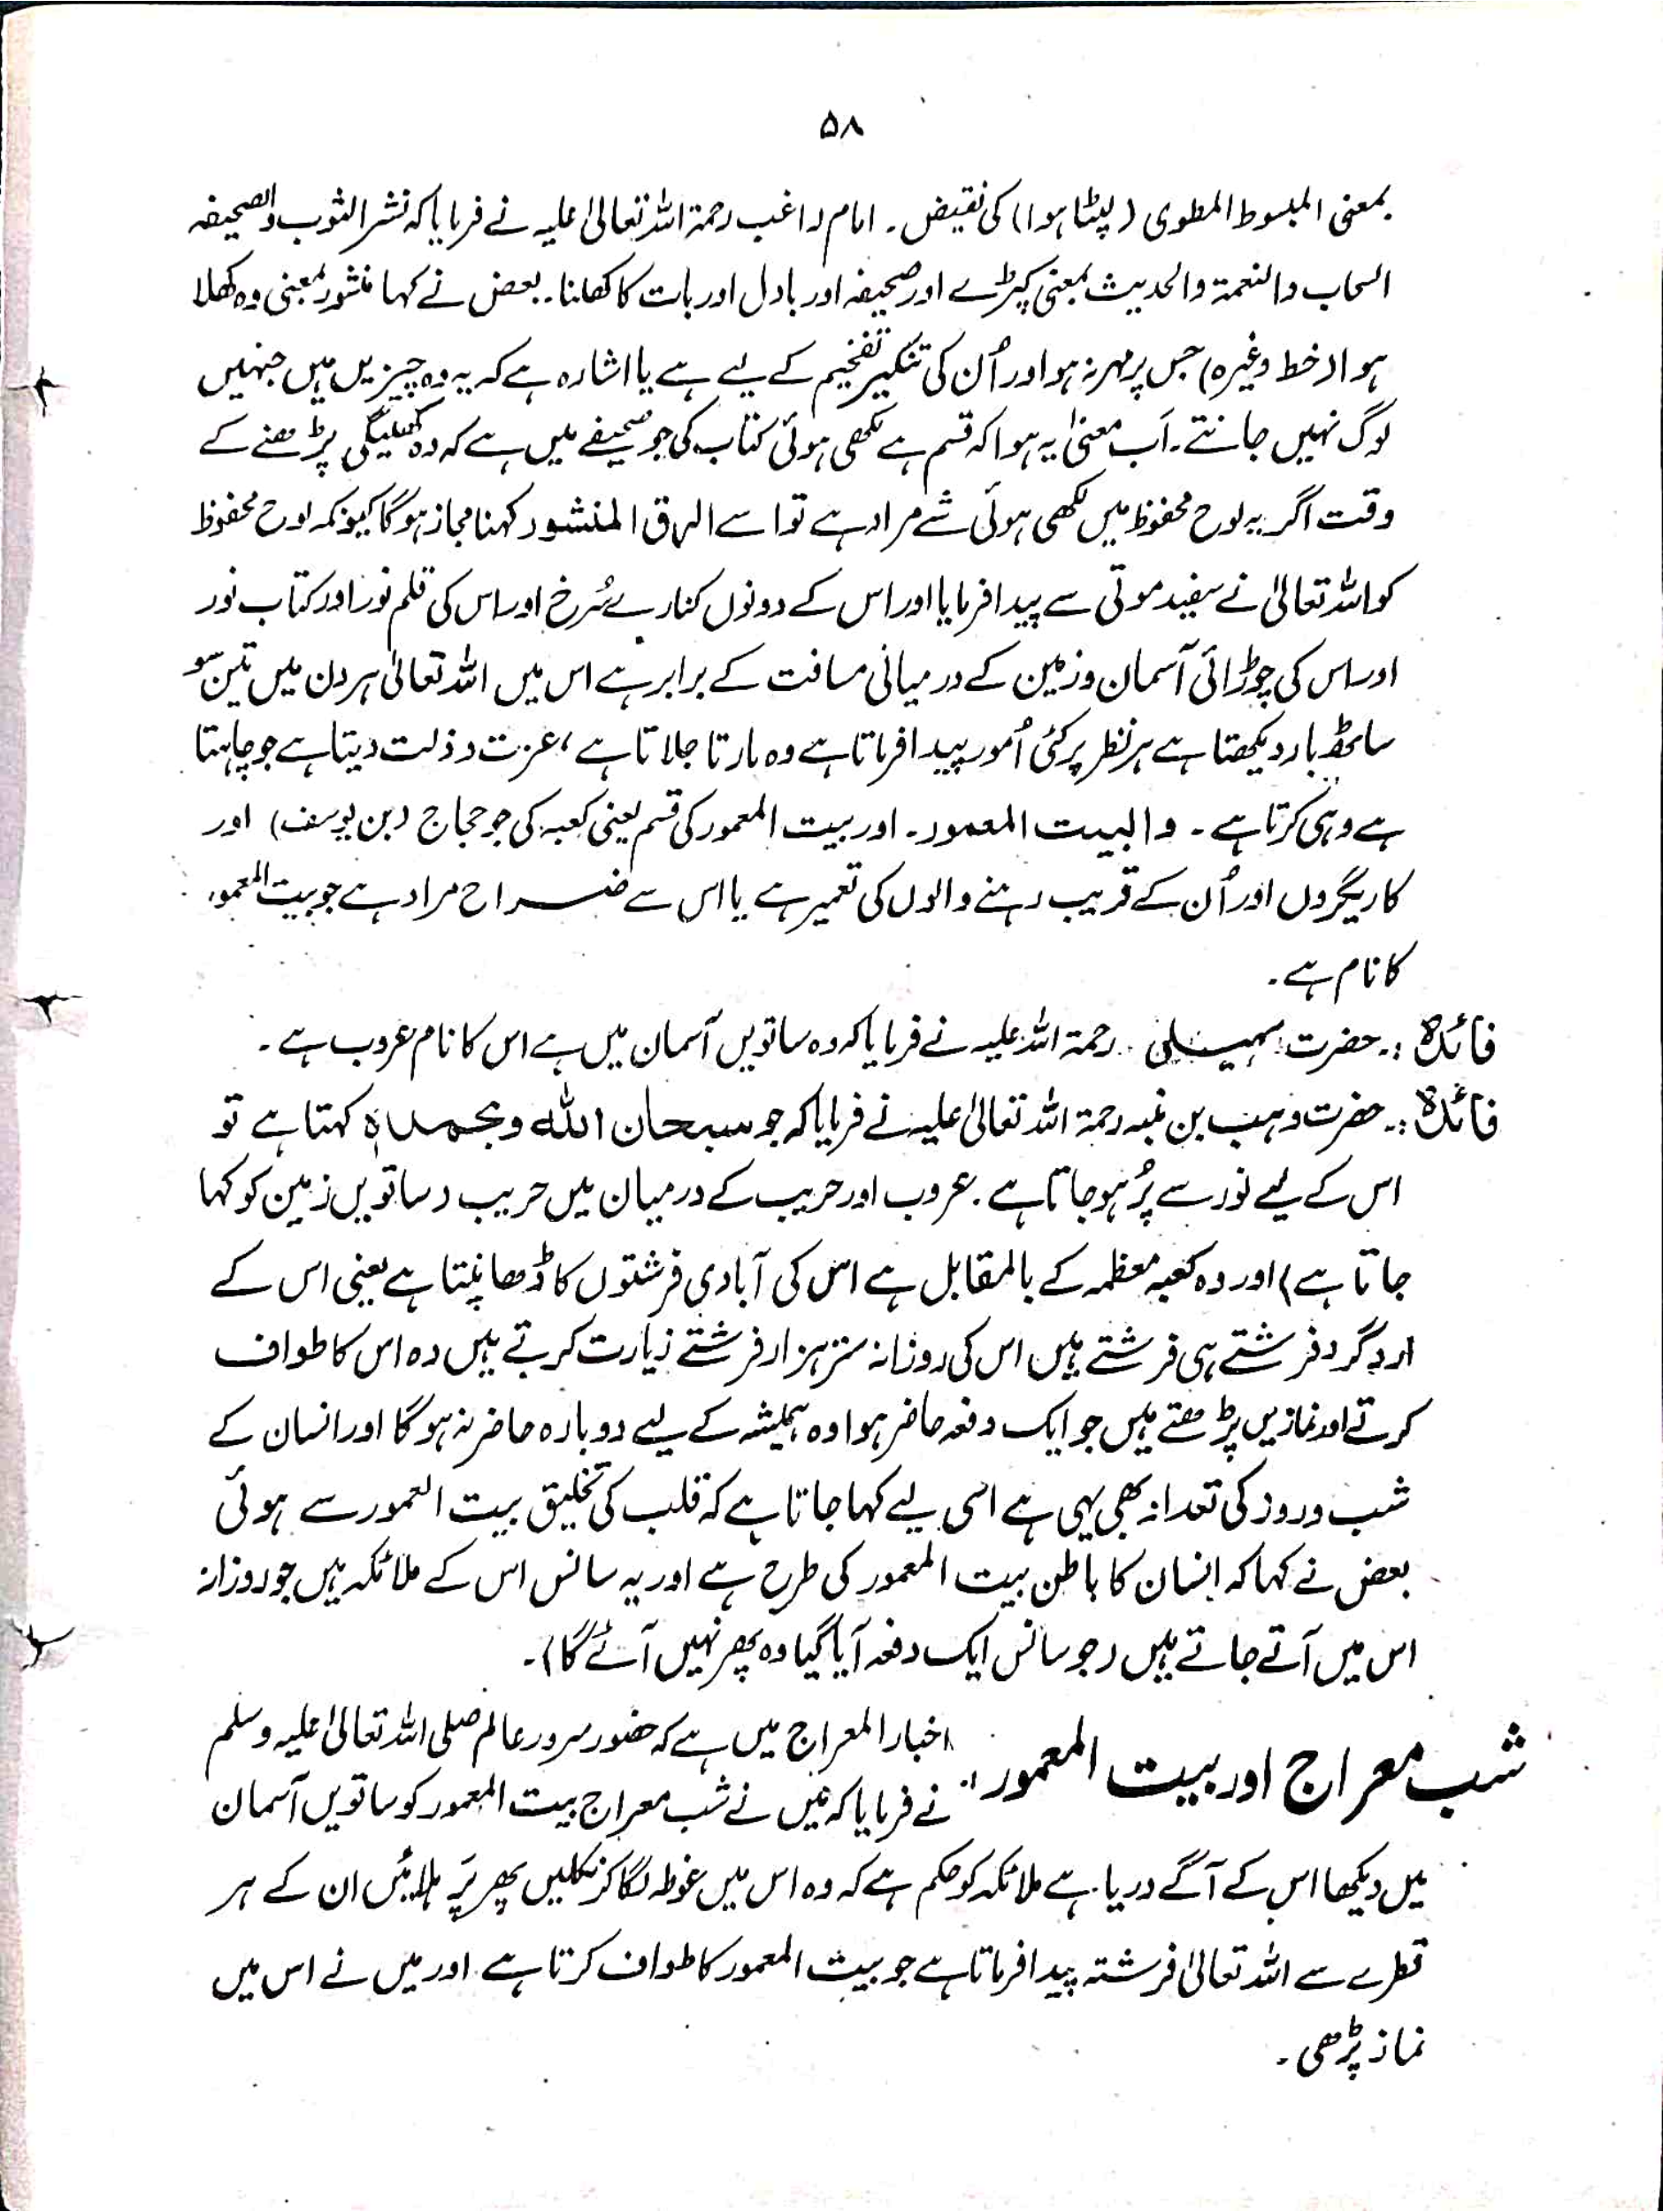 ۵۸
بمعنی المبسوط المطوی (لپٹا ہوا) کی نقیض۔ امام راغب رحمۃ اللہ تعالیٰ علیہ نے فرمایا کہ نشر الثوب والصحیفہ
السحاب والنعمۃ والحدیث بمعنی کپڑے اور صحیفہ اور بادل اور بات کا کھلنا۔ بعض نے کہا منشور بمعنی وہ کھلا
ہوا (خط وغیرہ) جس پر مہر نہ ہو اور اُن کی تنکیر تفخیم کے لیے ہے یا اشارہ ہے کہ یہ وہ چیزیں ہیں جنہیں
لوگ نہیں جانتے۔ اَب معنیٰ یہ ہوا کہ قسم ہے لکھی ہوئی کتاب کی جو صحیفے میں ہے کہ وہ کھلیگی پڑھنے کے
وقت اگر یہ لوح محفوظ میں لکھی ہوئی شے مراد ہے تو اسے الرق المنشور کہنا مجاز ہوگا کیونکہ لوح محفوظ
کو اللہ تعالیٰ نے سفید موتی سے پیدا فرمایا اور اس کے دونوں کنارے سُرخ اور اس کی قلم نور اور کتاب نور
اور اس کی چوڑائی آسمان و زمین کے درمیانی مسافت کے برابر ہے اس میں اللہ تعالیٰ ہر دن میں تین سو
ساٹھ بار دیکھتا ہے ہر نظر پر کئی اُمور پیدا فرماتا ہے وہ مارتا جلاتا ہے، عزت و ذلت دیتا ہے جو چاہتا
ہے وہی کرتا ہے۔ والبیت المعمور۔ اور بیت المعمور کی قسم یعنی کعبہ کی جو حجاج (بن یوسف) اور
کاریگروں اور اُن کے قریب رہنے والوں کی تعمیر ہے یا اس سے ضراح مراد ہے جو بیت المعمور
کا نام ہے۔
فائدہ :۔ حضرت سہیلی رحمۃ اللہ علیہ نے فرمایا کہ وہ ساتویں آسمان میں ہے اس کا نام عروب ہے۔
فائدہ :۔ حضرت وہب بن منبہ رحمۃ اللہ تعالیٰ علیہ نے فرمایا کہ جو سبحان اللہ وبحمدہ کہتا ہے تو
اس کے لیے نور سے پُر ہو جاتا ہے۔ عروب اور حریب کے درمیان میں حریب (ساتویں زمین کو کہا
جاتا ہے) اور وہ کعبہ معظمہ کے بالمقابل ہے اس کی آبادی فرشتوں کا ڈھانپنا ہے یعنی اس کے
ارد گرد فرشتے ہی فرشتے ہیں اس کی روزانہ ستر ہزار فرشتے زیارت کرتے ہیں وہ اس کا طواف
کرتے اور نمازیں پڑھتے ہیں جو ایک دفعہ حاضر ہوا وہ ہمیشہ کے لیے دوبارہ حاضر نہ ہو گا اور انسان کے
شب و روز کی تعداد بھی یہی ہے اسی لیے کہا جاتا ہے کہ قلب کی تخلیق بیت المعمور سے ہوئی
بعض نے کہا کہ انسان کا باطن بیت المعمور کی طرح ہے اور یہ سانس اس کے ملائکہ ہیں جو روزانہ
اس میں آتے جاتے ہیں (جو سانس ایک دفعہ آیا گیا وہ پھر نہیں آئے گا)۔
شب معراج اور بیت المعمور :۔ اخبار المعراج میں ہے کہ حضور سرور عالم صلی اللہ تعالیٰ علیہ وسلم
نے فرمایا کہ میں نے شب معراج بیت المعمور کو ساتویں آسمان
میں دیکھا اس کے آگے دریا ہے ملائکہ کو حکم ہے کہ وہ اس میں غوطہ لگا کر نکلیں پھر پَر ہلائیں ان کے ہر
قطرے سے اللہ تعالیٰ فرشتہ پیدا فرماتا ہے جو بیت المعمور کا طواف کرتا ہے اور میں نے اس میں
نماز پڑھی۔